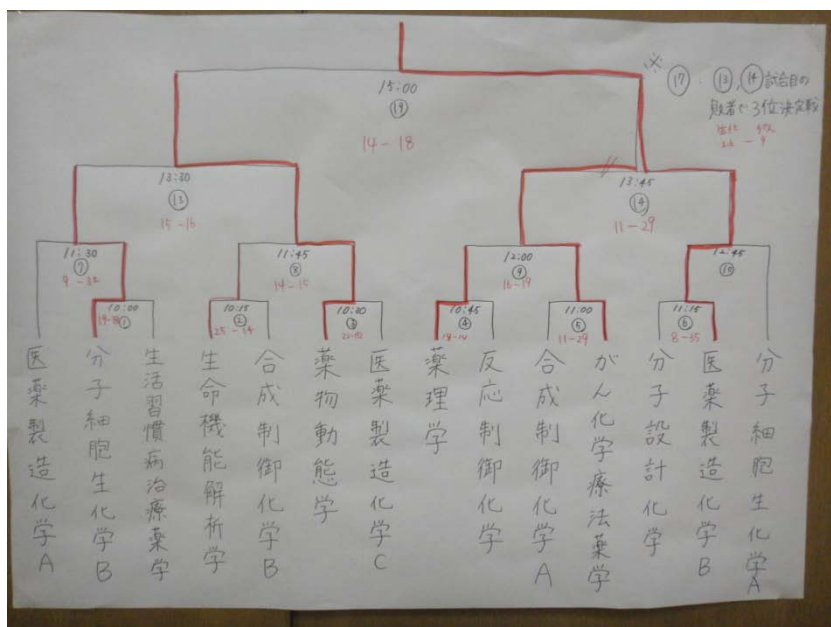 15:00
⑲
14-18
※ ⑰：⑬,⑭試合目の
敗者で3位決定戦
13:30
⑬
15-16
13:45
⑭
11-29
11:30
⑦
9-32
11:45
⑧
14-15
12:00
⑨
16-19
12:45
⑩
10:00
①
10:15
②
25-14
10:30
③
10:45
④
11:00
⑤
11-29
11:15
⑥
8-35
医薬製造化学A
分子細胞生化学B
生活習慣病治療薬学
生命機能解析学
合成制御化学B
薬物動態学
医薬製造化学C
薬理学
反応制御化学
合成制御化学A
がん化学療法薬学
分子設計化学
医薬製造化学B
分子細胞生化学A